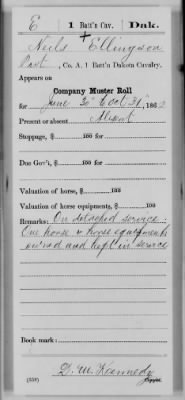 E | 1 Batt'n Cav. | Dak.
Neils Ellingson
Pvt, Co. A, 1 Batt'n Dakota Cavalry.
Appears on
Company Muster Roll
for June 30 to Oct 31, 1862
Present or absent Absent
Stoppage, $ 100 for
Due Gov't, $ 100 for
Valuation of horse, $ 100
Valuation of horse equipments, $ 100
Remarks: On detached service.
One horse & horse equipments
owned and kept in service
Book mark:
D. M. Kennedy
(358) Copyist.